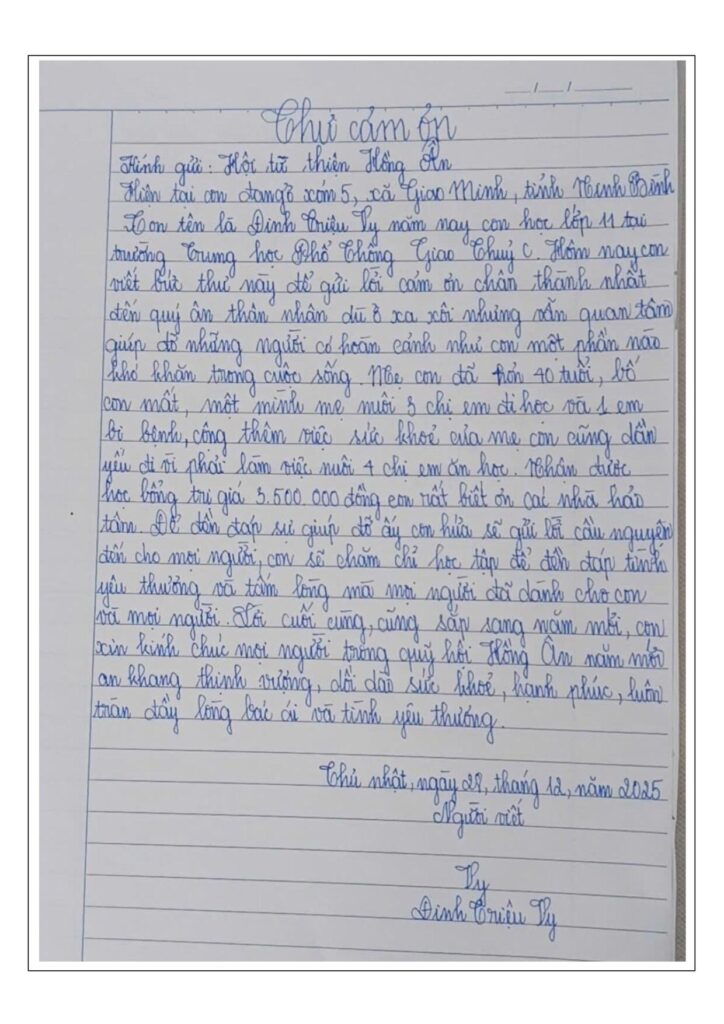 Thư cám ơn
Kính gửi: Hội từ thiện Hồng Ân
Hiện tại con đang ở xóm 5, xã Giao Minh, tỉnh Ninh Bình
Con tên là Đinh Triệu Vy năm nay con học lớp 11 tại
trường Trung học Phổ Thông Giao Thuỷ C. Hôm nay con
viết bức thư này để gửi lời cám ơn chân thành nhất
đến quý ân thân nhân dù ở xa xôi nhưng vẫn quan tâm
giúp đỡ những người có hoàn cảnh như con một phần nào
khó khăn trong cuộc sống. Mẹ con đã hơn 40 tuổi, bố
con mất, một mình mẹ nuôi 3 chị em đi học và 1 em
bị bệnh, cộng thêm việc sức khoẻ của mẹ con cũng dần
yếu đi vì phải làm việc nuôi 4 chị em ăn học. Nhận được
học bổng trị giá 3.500.000 đồng con rất biết ơn các nhà hảo
tâm. Để đền đáp sự giúp đỡ ấy con hứa sẽ gửi lời cầu nguyện
đến cho mọi người, con sẽ chăm chỉ học tập để đền đáp tình
yêu thương và tấm lòng mà mọi người đã dành cho con
và mọi người. Lời cuối cùng, cũng sắp sang năm mới, con
xin kính chúc mọi người trong quý hội Hồng Ân năm mới
an khang thịnh vượng, dồi dào sức khoẻ, hạnh phúc, luôn
tràn đầy lòng bác ái và tình yêu thương.
Chủ nhật, ngày 28, tháng 12, năm 2025
Người viết
Vy
Đinh Triệu Vy